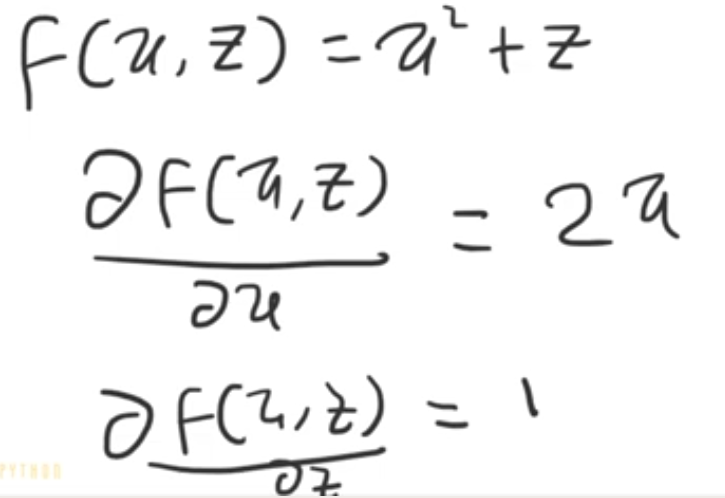 F(x, z) = x² + z
∂F(x, z) / ∂x = 2x
∂F(x, z) / ∂z = 1
PYTHON